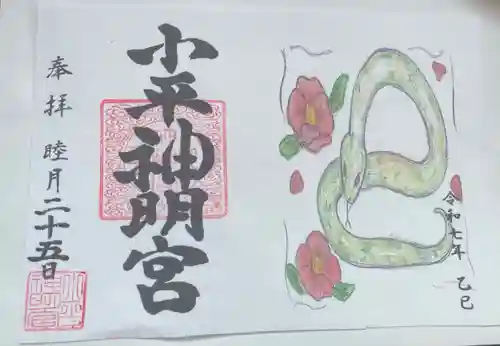 令和七年 乙巳
小平神明宮
奉拝 睦月二十五日